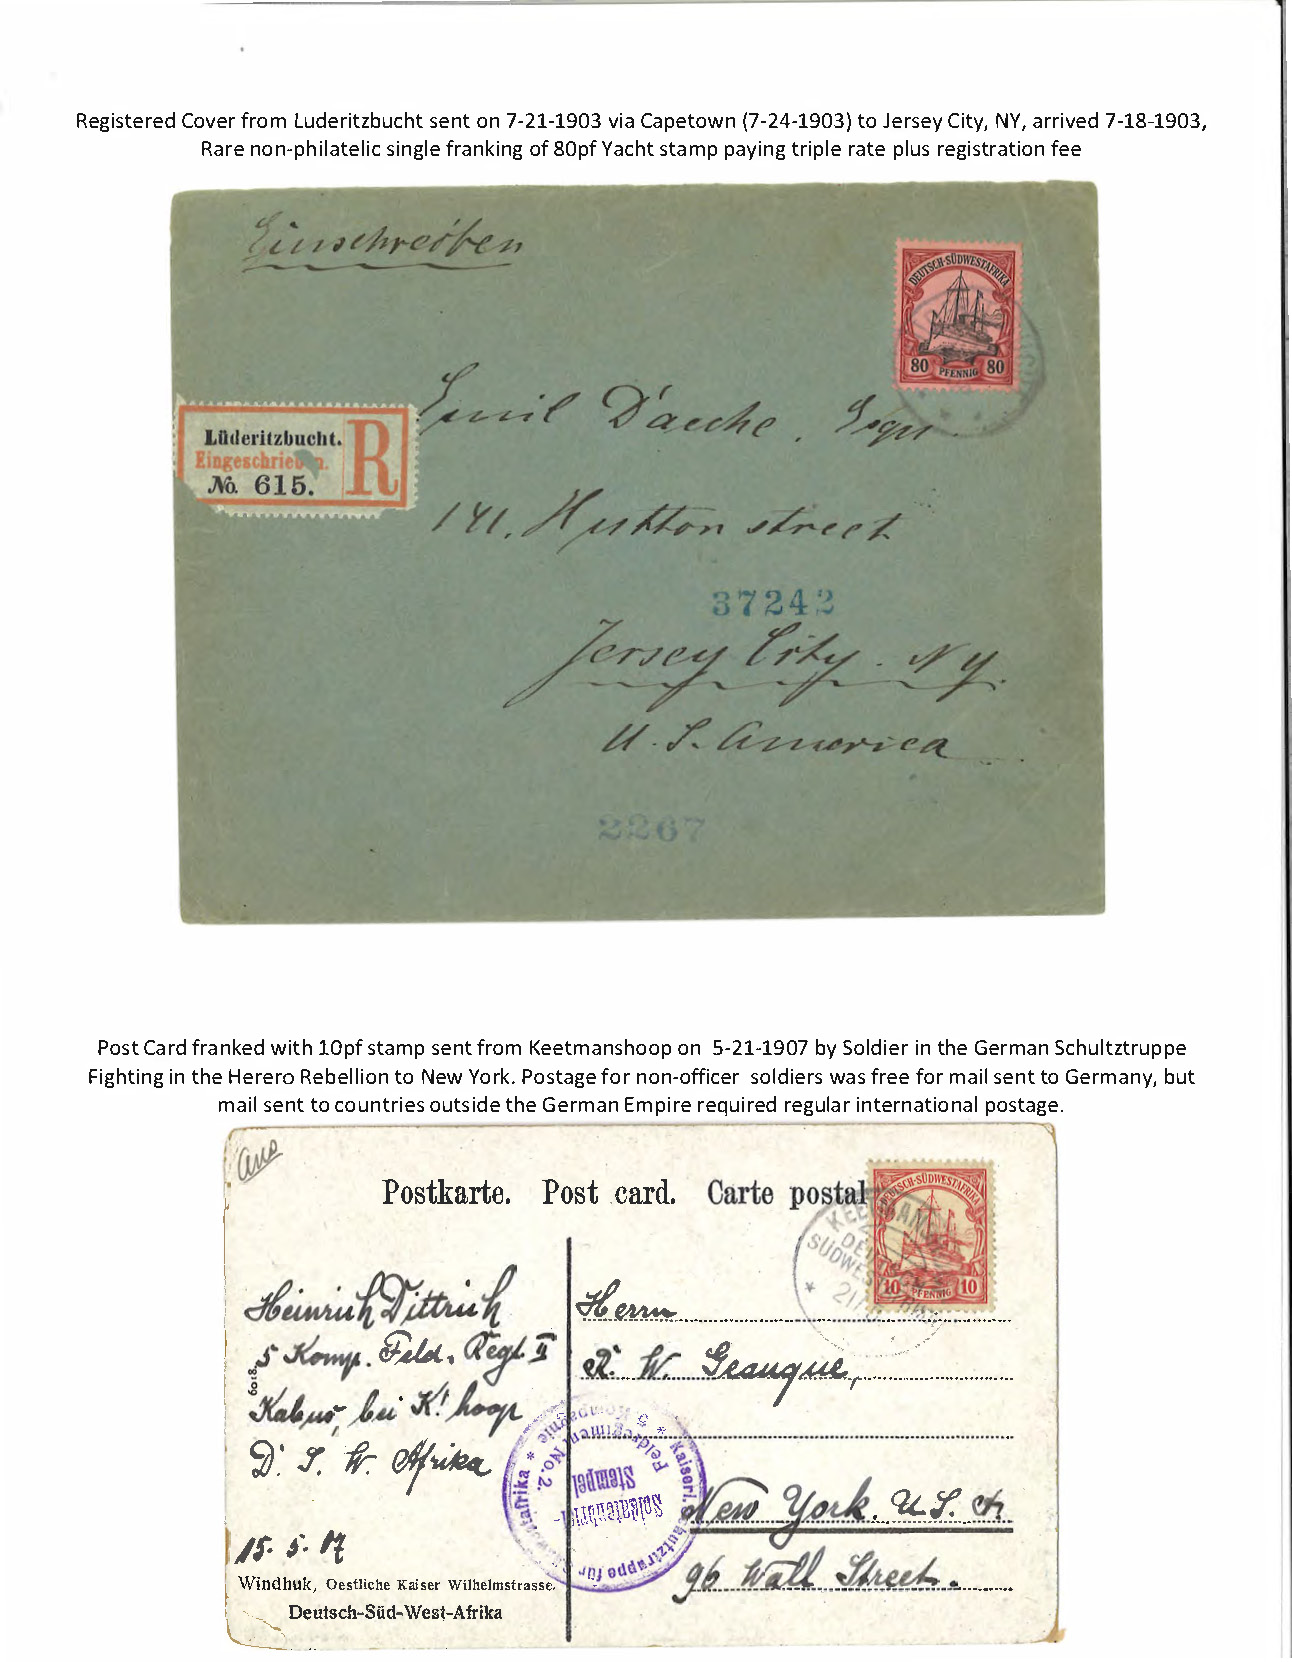 Registered Cover from Luderitzbucht sent on 7-21-1903 via Capetown (7-24-1903) to Jersey City, NY, arrived 7-18-1903,
Rare non-philatelic single franking of 80pf Yacht stamp paying triple rate plus registration fee
Einschreiben
DEUTSCH-SÜDWESTAFRIKA
80 PFENNIG 80
Emil D'aeche, Esqu
Lüderitzbucht.
Eingeschrieben.
No. 615.
R
141, Hutton street
37242
Jersey City. NY.
U.S. America
2267
Post Card franked with 10pf stamp sent from Keetmanshoop on 5-21-1907 by Soldier in the German Schultztruppe
Fighting in the Herero Rebellion to New York. Postage for non-officer soldiers was free for mail sent to Germany, but
mail sent to countries outside the German Empire required regular international postage.
Postkarte. Post card. Carte postal
DEUTSCH-SÜDWESTAFRIKA
10 PFENNIG 10
Heinrich Dittrich
5 Komp. Feld. Regt. II
6018
Kabus, bei K'hoop
D. S. W. Afrika
15. 5. 07
Windhuk, Oestliche Kaiser Wilhelmstrasse.
Deutsch-Süd-West-Afrika
Herrn
R. W. Geauque,
New York. U.S. A.
96 Wall Street.
Kaiserl. Schutztruppe für Südwestafrika
Feldregiment No. 2.
5 Kompagnie
Soldatenbrief-
Stempel